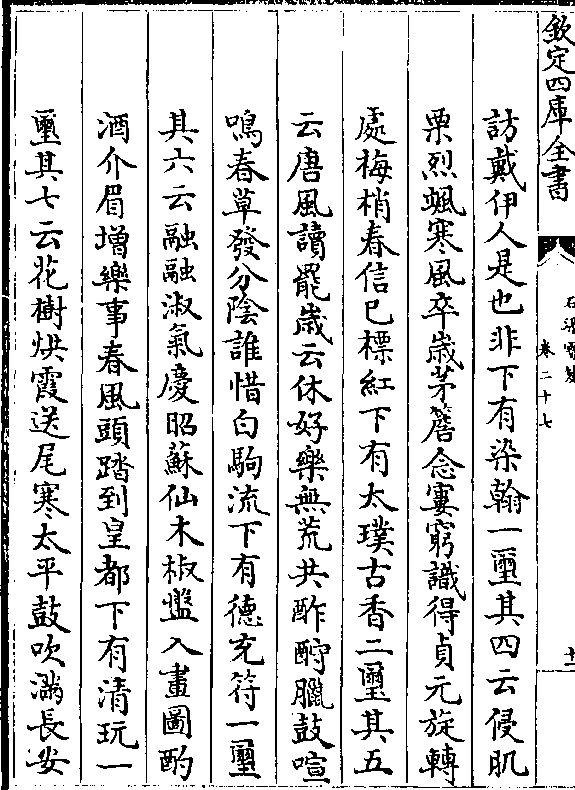 欽定四庫全書
石渠寶笈
卷二十七
十一
訪戴伊人是也非下有染翰一璽其四云侵肌
栗烈颯寒風卒歲茅簷念窶窮識得貞元旋轉
處梅梢春信已標紅下有太璞古香二璽其五
云唐風讀罷歳云休好樂無荒共酢酧臘鼓喧
鳴春草發分陰誰惜白駒流下有德充符一璽
其六云融融淑氣慶昭蘇仙木椒盤入畫圖酌
酒介眉増樂事春風頭踏到皇都下有清玩一
璽其七云花樹烘霞送尾寒太平鼓吹滿長安